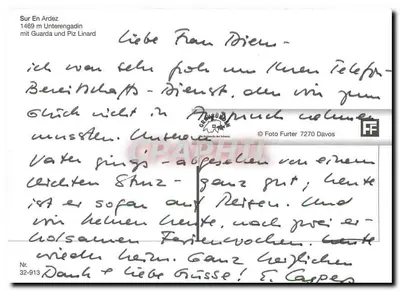 Sur En Ardez
1469 m Unterengadin
mit Guarda und Piz Linard
Liebe Frau Diem -
ich war sehr froh um Ihren Telefon-
Bereitschafts-Dienst, den wir zum
Glück nicht in Anspruch nehmen
mussten. Unserem
© Foto Furter 7270 Davos
FF
Vater ging's - abgesehen von einem
leichten Sturz - ganz gut, heute
ist er sogar auf Reisen. Und
wir kehren heute, nach zwei er-
holsamen Ferienwochen,
wieder heim. Ganz herzlichen
Dank & liebe Grüsse! E.
Nr.
32-913